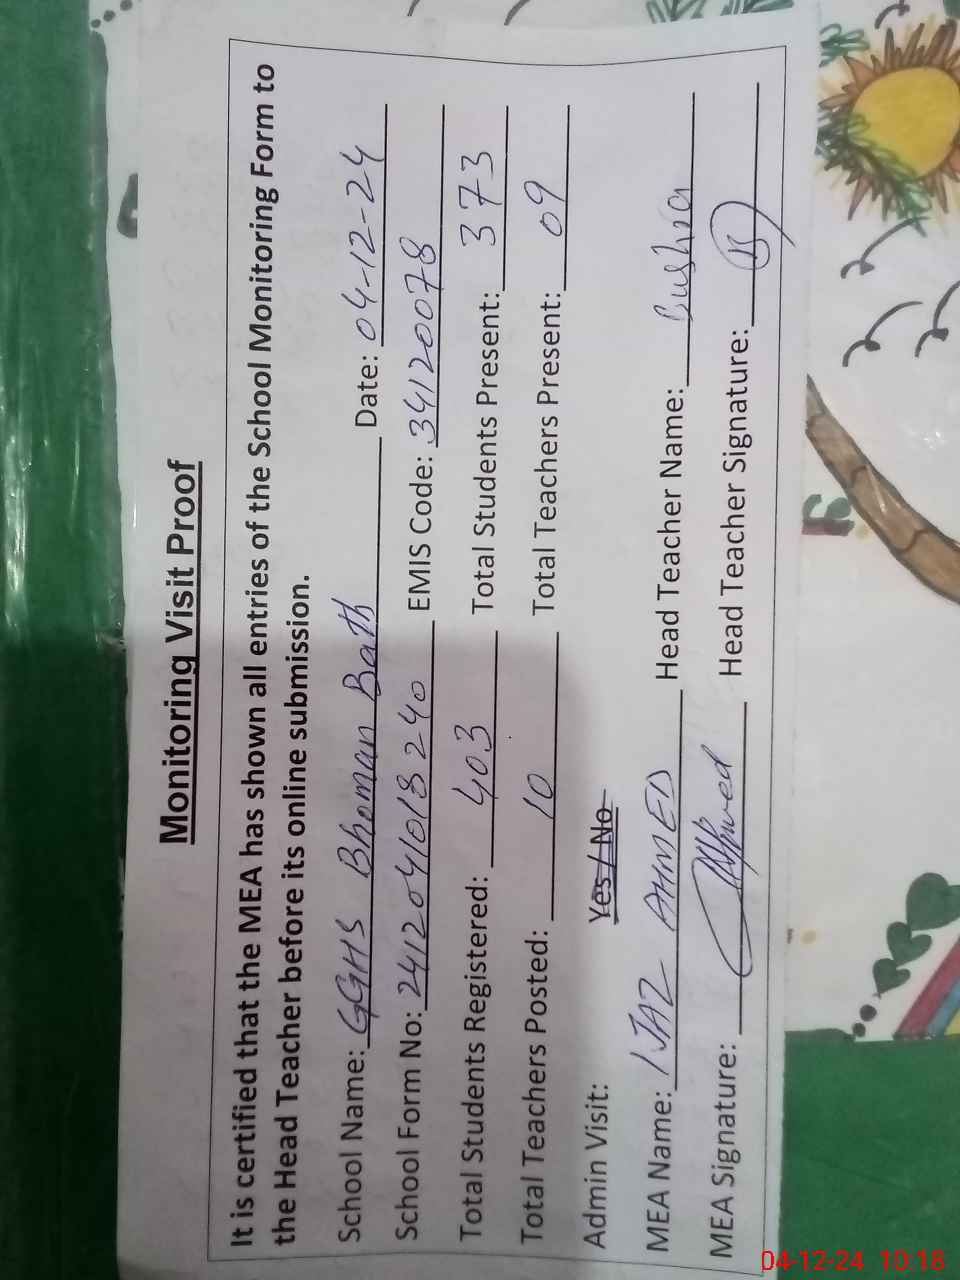 Monitoring Visit Proof
It is certified that the MEA has shown all entries of the School Monitoring Form to
the Head Teacher before its online submission.
School Name: GGHS Bhoman Bath Date: 04-12-24
School Form No: 2412041018240 EMIS Code: 34120078
Total Students Registered: 403 Total Students Present: 373
Total Teachers Posted: 10 Total Teachers Present: 09
Admin Visit: Yes / No
MEA Name: IJAZ AHMED Head Teacher Name: Bushra
MEA Signature: Head Teacher Signature:
04-12-24 10:18